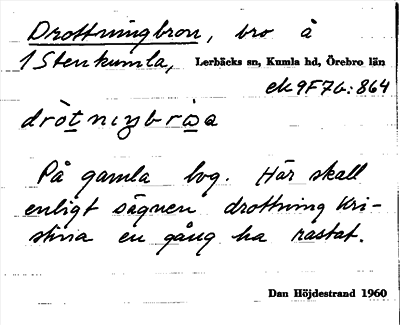 Drottningbron, bro å
1 Stenkumla, Lerbäcks sn, Kumla hd, Örebro län
ek 9F7b:864
På gamla lvg. Här skall
enligt sägnen drottning Kri-
stina en gång ha rastat.
Dan Höjdestrand 1960